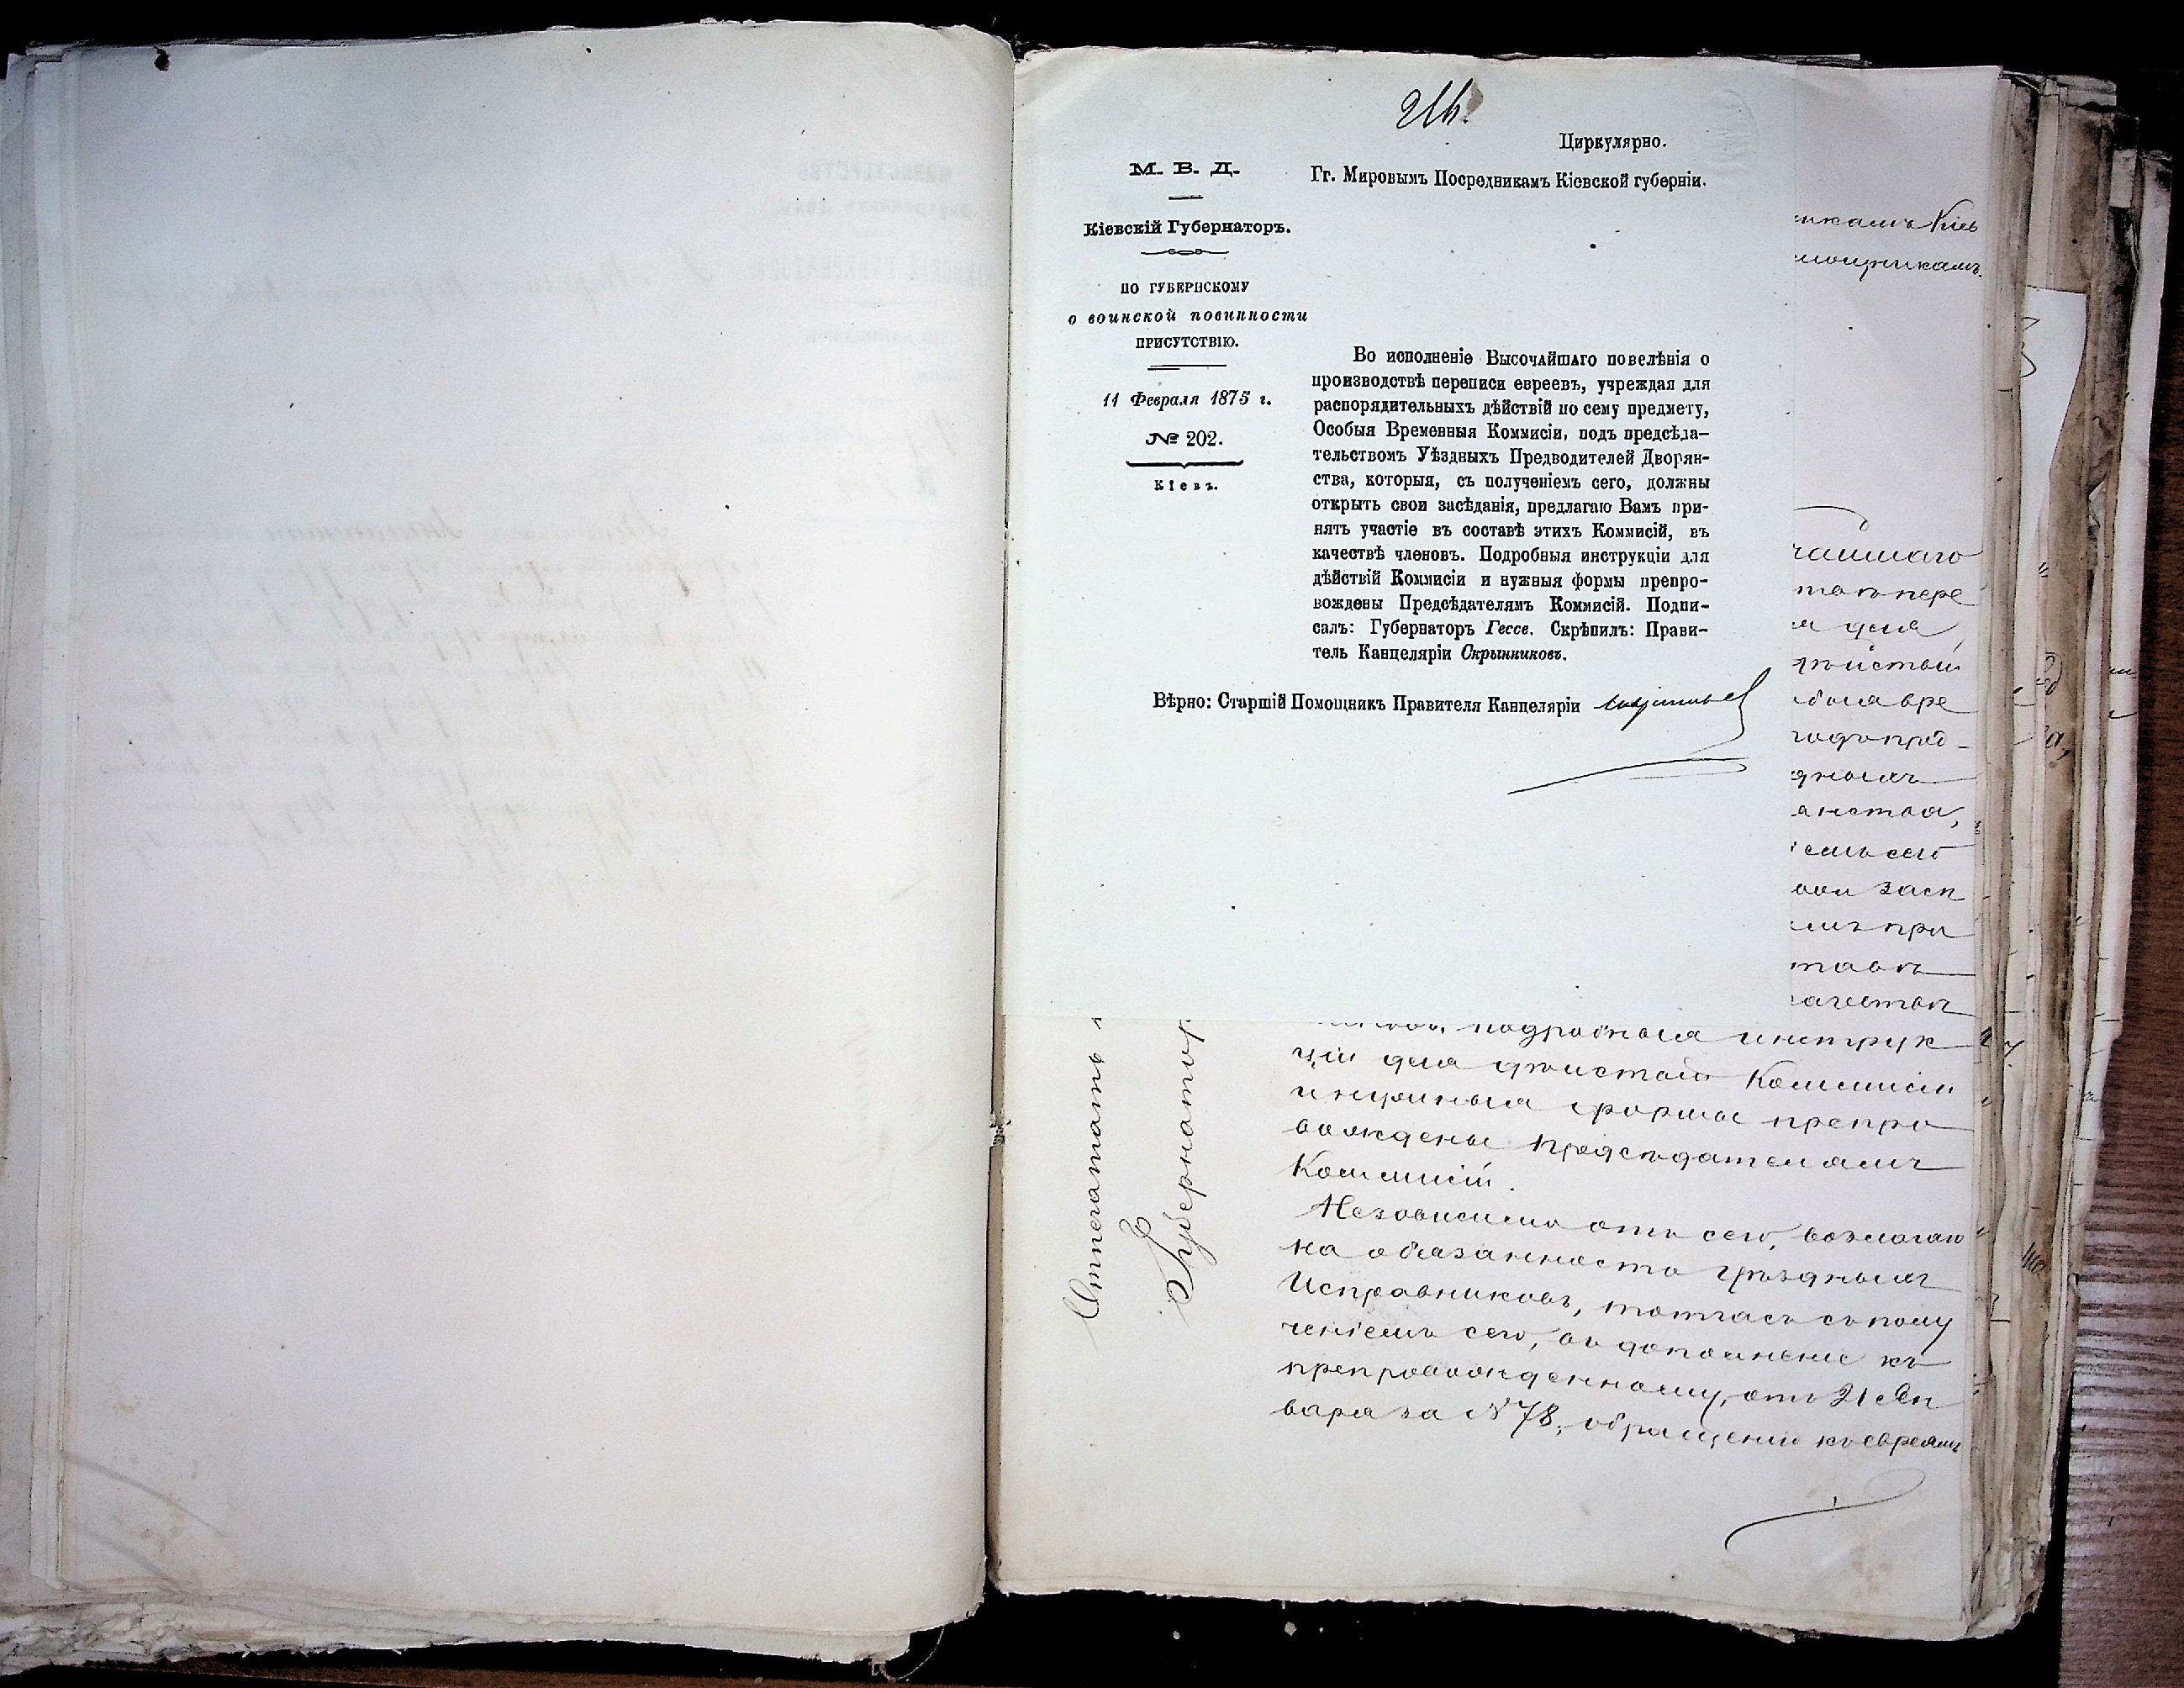 Циркулярно.
М. В. Д.
Гг. Мировымъ Посредникамъ Кіевской губерніи.
Кіевскій Губернаторъ.
ПО ГУБЕРНСКОМУ
о воинской повинности
ПРИСУТСТВІЮ.
11 Февраля 1875 г.
№ 202.
Кіевъ.
Во исполненіе Высочайшаго повелѣнія о
производствѣ переписи евреевъ, учреждая для
распорядительныхъ дѣйствій по сему предмету,
Особыя Временныя Коммисіи, подъ предсѣда-
тельствомъ Уѣздныхъ Предводителей Дворян-
ства, которыя, съ полученіемъ сего, должны
открыть свои засѣданія, предлагаю Вамъ при-
нять участіе въ составѣ этихъ Коммисій, въ
качествѣ членовъ. Подробныя инструкціи для
дѣйствій Коммисіи и нужныя формы препро-
вождены Предсѣдателямъ Коммисій. Подпи-
салъ: Губернаторъ Гессе. Скрѣпилъ: Прави-
тель Канцеляріи Скрынниковъ.
Вѣрно: Старшій Помощникъ Правителя Канцеляріи
икамъ Кіев
мощникамъ.
чайшаго
твѣ пере
я для
дѣйствій
обыя вре
подъ пред-
дныхъ
янства,
іемъ сего
вои засѣ
амъ при
тавѣ
качествѣ
подробныя инструк
ціи для дѣйствій Коммисіи
и нужныя формы препро
вождены Предсѣдателямъ
Коммисій.
Независимо отъ сего, возлагаю
на обязанность Уѣздныхъ
Исправниковъ, тотчасъ съ полу
ченіемъ сего, въ дополненіе къ
препровожденному, отъ 21 Ян
варя за № 78, обращенію къ евреямъ
Отпечатать
Губернатор